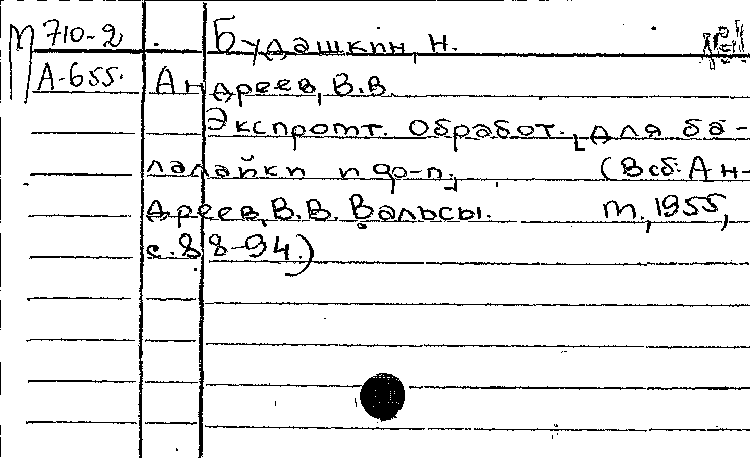 М 710-2 Будашкин, Н.
А-655. Андреев, В.В.
Экспромт. Обработ. [для ба-
лалайки и ф-п.] (В сб: Ан-
дреев, В.В. Вальсы. М., 1955,
с. 88-94.)